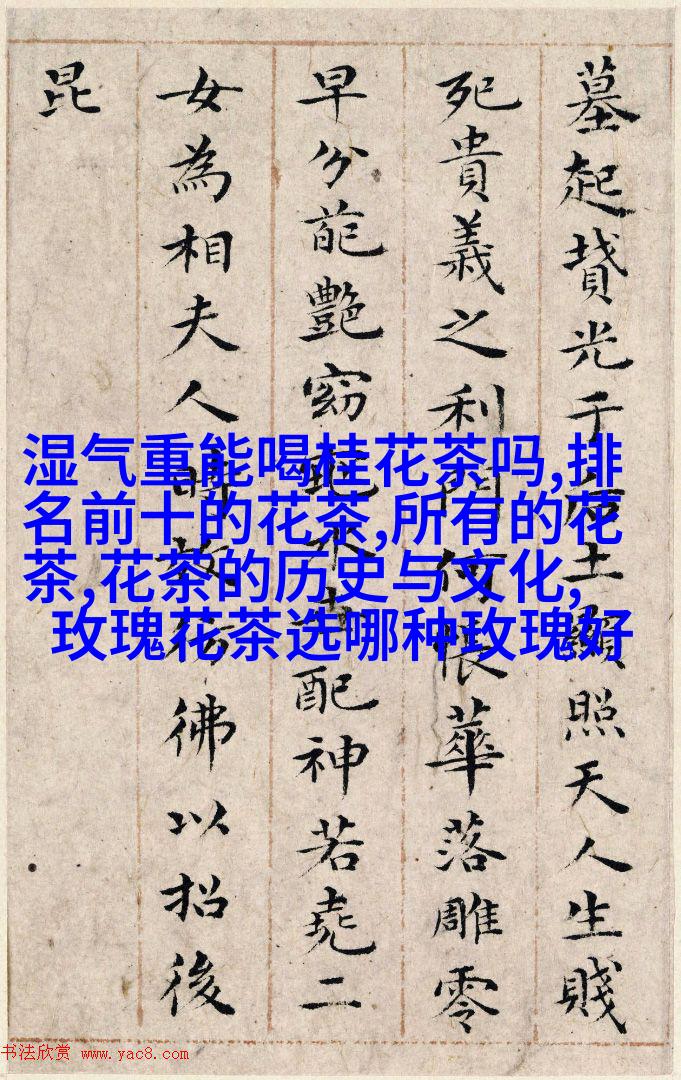 墓起墳光于后土顯照天人生賤
死貴義之利何悵華落雕零
早分葩艷窈配神若堯二
女為相夫人時故彷彿以招後
昆
湿气重能喝桂花茶吗,排
名前十的花茶,所有的花
茶,花茶的历史与文化,
玫瑰花茶选哪种玫瑰好
书法欣赏 www.yac8.com